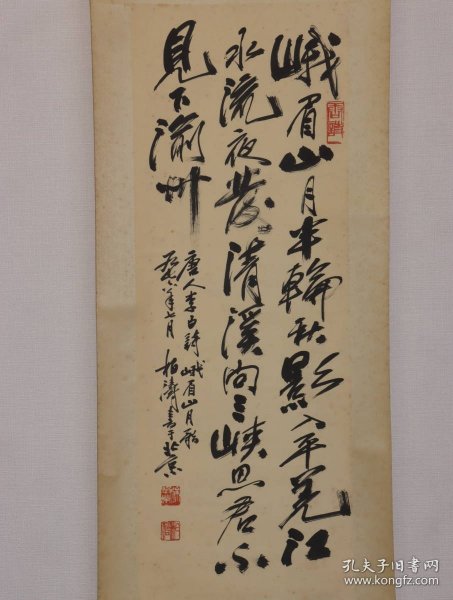 峨眉山月半輪秋影入平羌江
水流夜發清溪向三峽思君不
見下渝州
唐人李白詩峨眉山月歌
年七月 柏濤書于北京
孔夫子旧书网
www.kongfz.com